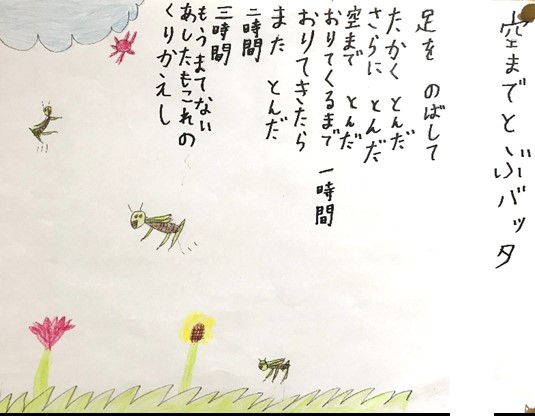 空までとぶバッタ
足を のばして
たかく とんだ
さらに とんだ
空まで とんだ
おりてくるまで 一時間
おりてきたら
また とんだ
二時間
三時間
もうまてない
あしたもこれの
くりかえし